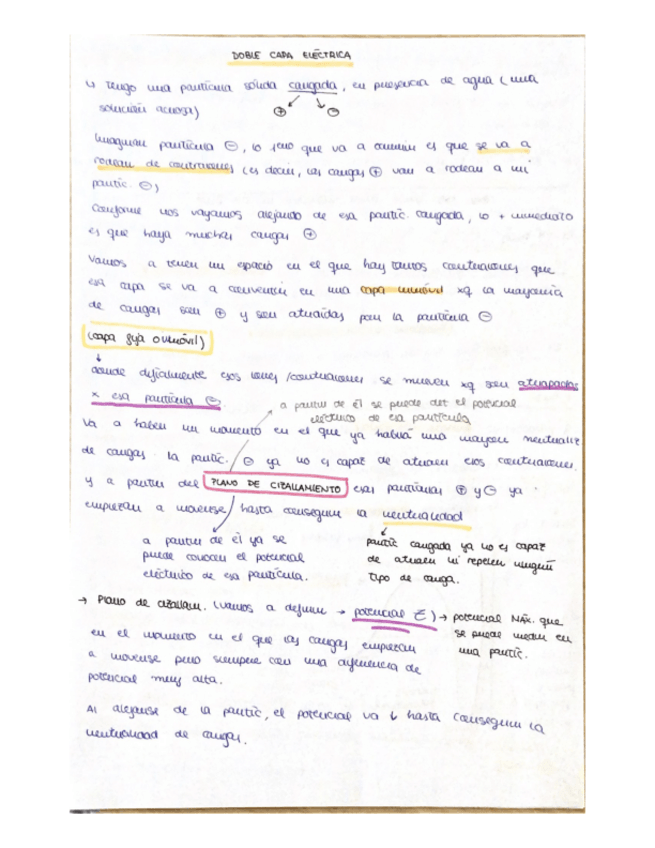 DOBLE CAPA ELÉCTRICA
↳ Tengo una partícula sólida cargada, en presencia de agua (una
solución acuosa) ⊕ ⊖
Imaginar partícula ⊖, lo que va a ocurrir es que se va a
rodear de contraiones (es decir, las cargas ⊕ van a rodear a mi
partic. ⊖)
Conforme nos vayamos alejando de esa partic. cargada, lo + inmediato
es que haya muchas cargas ⊕
Vamos a tener un espacio en el que hay tantos contraiones que
esa capa se va a convertir en una capa inmóvil xq la mayoría
de cargas son ⊕ y son atraídas por la partícula ⊖
(capa fija o inmóvil)
↓
donde difícilmente esos iones/contraiones se mueven xq son atrapados
x esa partícula ⊖.
a partir de él se puede det el potencial
eléctrico de esa partícula
Va a haber un momento en el que ya habrá una mayor neutraliz
de cargas. la partic. ⊖ ya no es capaz de atraer esos contraiones.
y a partir del PLANO DE CIZALLAMIENTO esas partículas ⊕ y ⊖ ya
empiezan a moverse hasta conseguir la neutralidad
a partir de él ya se
puede conocer el potencial
eléctrico de esa partícula.
partic cargada ya no es capaz
de atraer ni repeler ningún
tipo de carga.
→ Plano de cizallam. (vamos a definir → potencial Σ) → potencial MÁX. que
se puede medir en
una partíc.
en el momento en el que las cargas empiezan
a moverse pero siempre con una diferencia de
potencial muy alta.
Al alejarse de la partic, el potencial va ↓ hasta conseguir la
neutralidad de cargas.